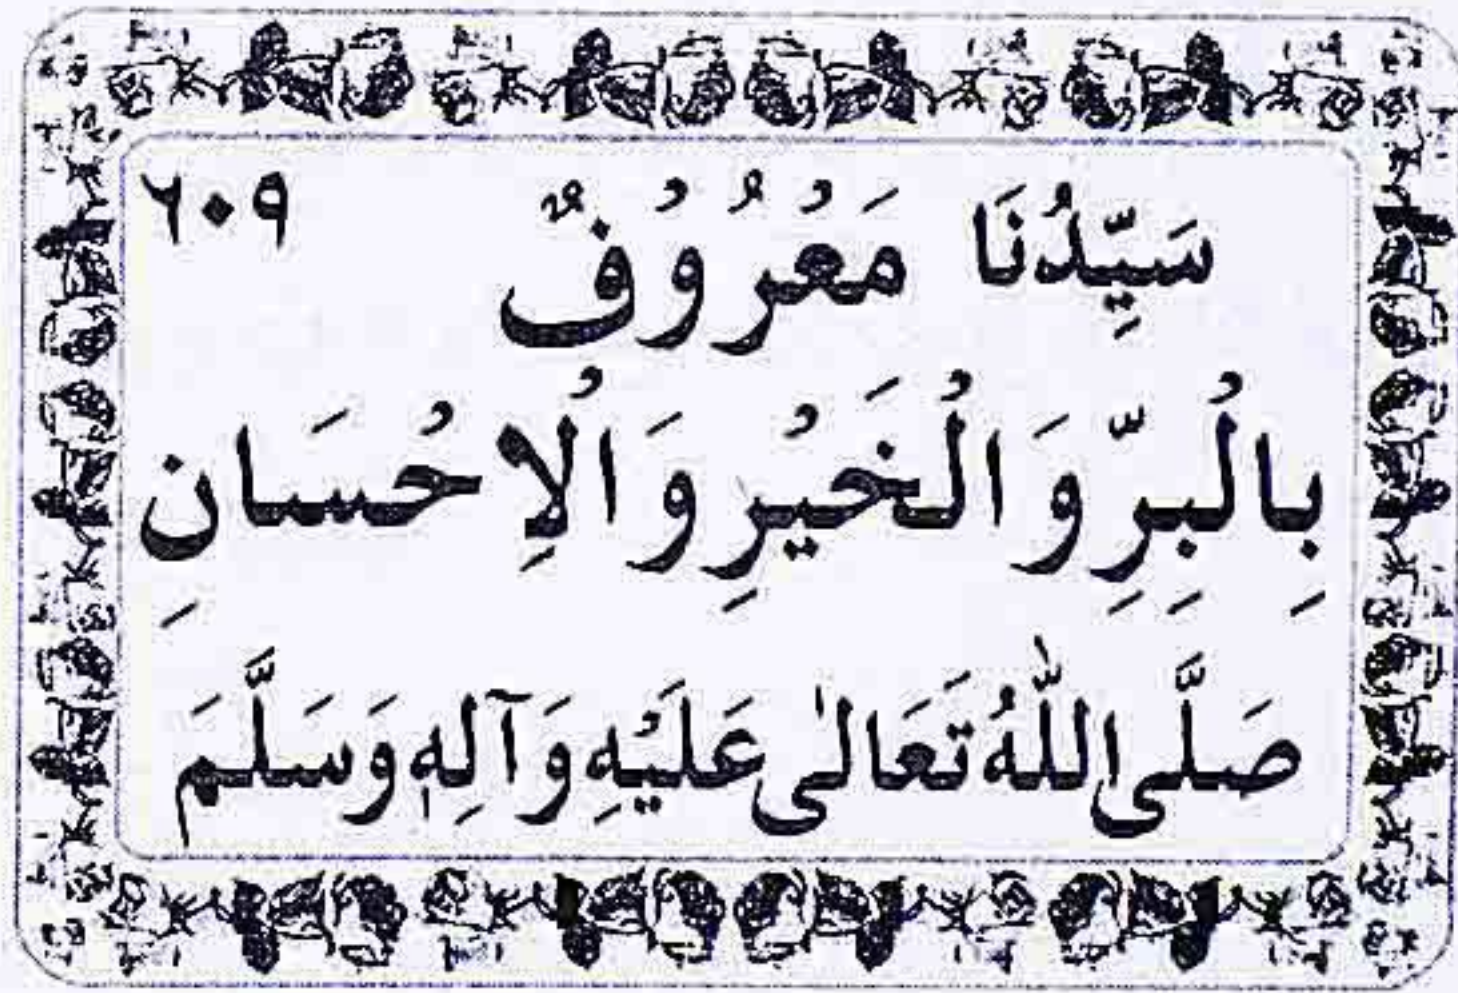 سَيِّدُنَا مَعْرُوْفٌ ٦٠٩
بِالْبِرِّ وَالْخَيْرِ وَالْاِحْسَانِ
صَلَّى اللّٰهُ تَعَالٰى عَلَيْهِ وَآلِهٖ وَسَلَّمَ